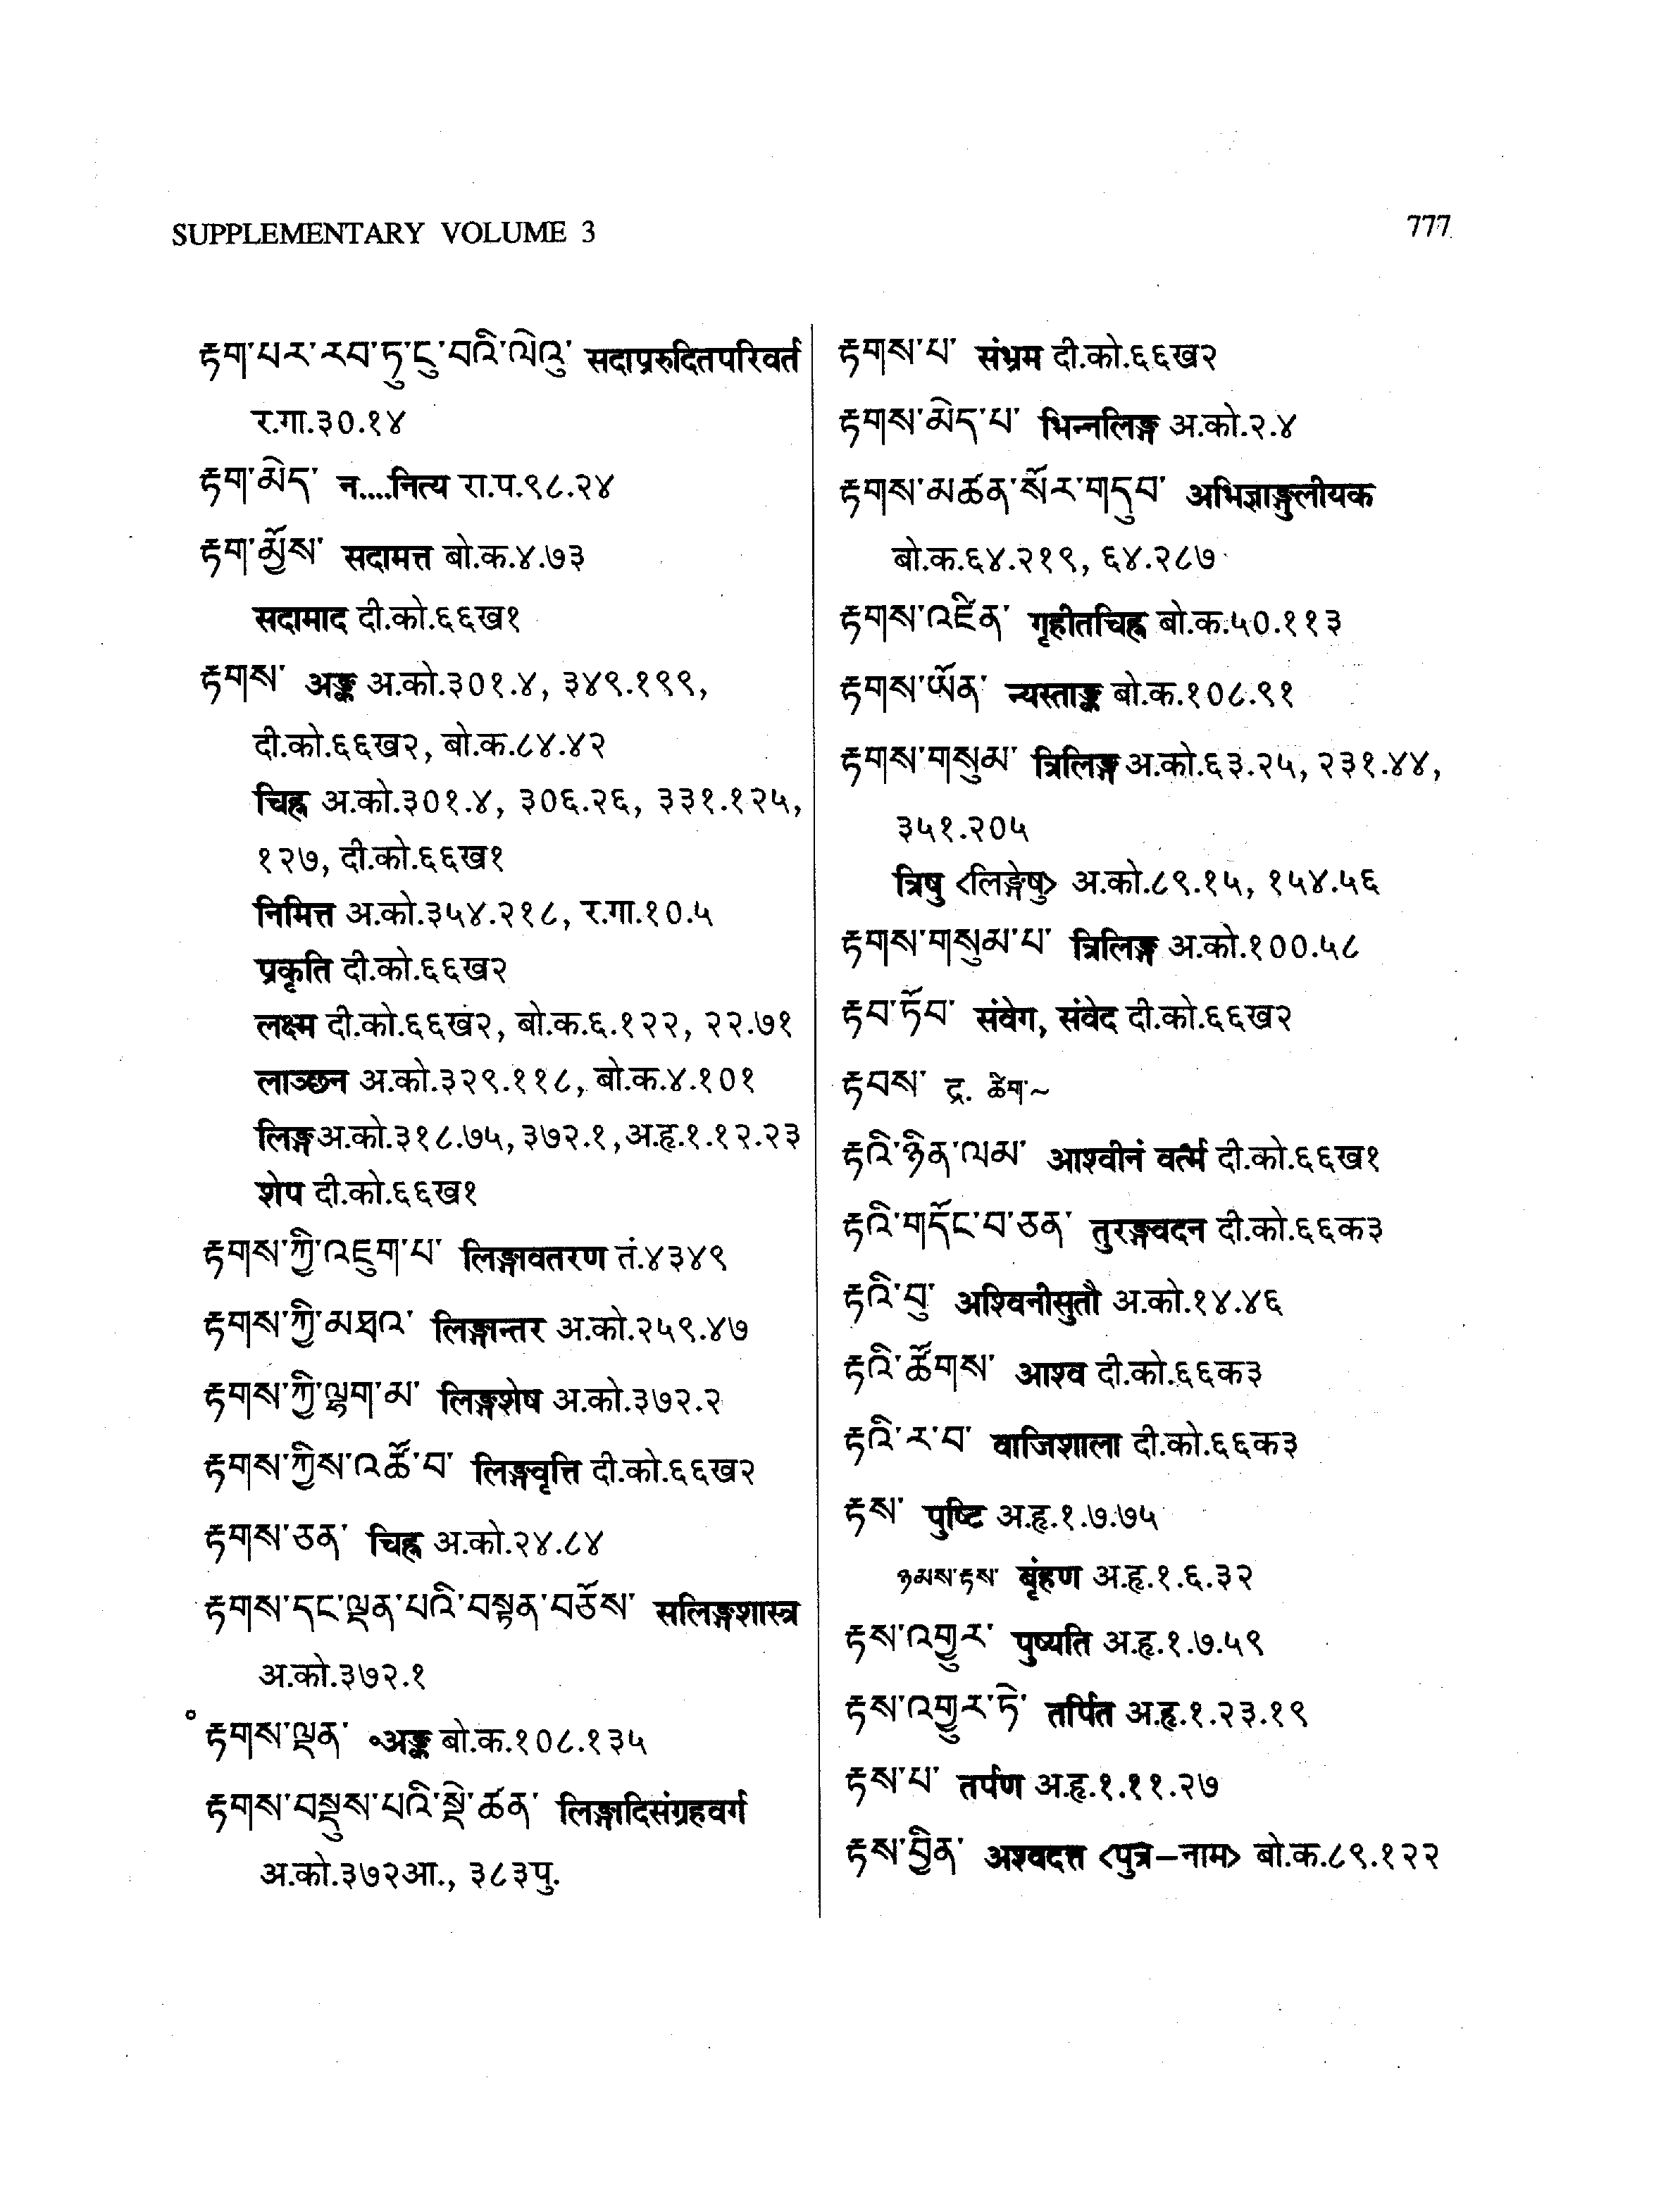 SUPPLEMENTARY VOLUME 3
777
རྟག་པར་རབ་ཏུ་ངུ་བའི་ལེའུ་ सदाप्ररुदितपरिवर्त
र.गा.३०.१४
རྟག་མེད་ न....नित्य रा.प.९८.२४
རྟག་མྱོས་ सदामत्त बो.क.४.७३
सदामाद दी.को.६६ख१
རྟགས་ अङ्क अ.को.३०१.४, ३४९.१९९,
दी.को.६६ख२, बो.क.८४.४२
चिह्न अ.को.३०१.४, ३०६.२६, ३३१.१२५,
१२७, दी.को.६६ख१
निमित्त अ.को.३५४.२१८, र.गा.१०.५
प्रकृति दी.को.६६ख२
लक्ष्म दी.को.६६ख२, बो.क.६.१२२, २२.७१
लाञ्छन अ.को.३२९.११८, बो.क.४.१०१
लिङ्ग अ.को.३१८.७५, ३७२.१, अ.हृ.१.१२.२३
शेप दी.को.६६ख१
རྟགས་ཀྱི་འཇུག་པ་ लिङ्गावतरण तं.४३४९
རྟགས་ཀྱི་མཐའ་ लिङ्गान्तर अ.को.२५९.४७
རྟགས་ཀྱི་ལྷག་མ་ लिङ्गशेष अ.को.३७२.२
རྟགས་ཀྱིས་འཚོ་བ་ लिङ्गवृत्ति दी.को.६६ख२
རྟགས་ཅན་ चिह्न अ.को.२४.८४
རྟགས་དང་ལྡན་པའི་བསྟན་བཅོས་ सलिङ्गशास्त्र
अ.को.३७२.१
°རྟགས་ལྡན་ ॰अङ्क बो.क.१०८.१३५
རྟགས་བསྡུས་པའི་སྡེ་ཚན་ लिङ्गादिसंग्रहवर्ग
अ.को.३७२आ., ३८३पु.
རྟགས་པ་ संभ्रम दी.को.६६ख२
རྟགས་མེད་པ་ भिन्नलिङ्ग अ.को.२.४
རྟགས་མཚན་སོར་གདུབ་ अभिज्ञाङ्गुलीयक
बो.क.६४.२१९, ६४.२८७
རྟགས་འཛིན་ गृहीतचिह्न बो.क.५०.११३
རྟགས་ཡོན་ न्यस्ताङ्क बो.क.१०८.९१
རྟགས་གསུམ་ त्रिलिङ्ग अ.को.६३.२५, २३१.४४,
३५१.२०५
त्रिषु <लिङ्गेषु> अ.को.८९.१५, १५४.५६
རྟགས་གསུམ་པ་ त्रिलिङ्ग अ.को.१००.५८
རྟབ་ཏོབ་ संवेग, संवेद दी.को.६६ख२
རྟབས་ द्र. ཚིག་~
རྟའི་ཉིན་ལམ་ आश्वीनं वर्त्म दी.को.६६ख१
རྟའི་གདོང་བ་ཅན་ तुरङ्गवदन दी.को.६६क३
རྟའི་བུ་ अश्विनीसुतौ अ.को.१४.४६
རྟའི་ཚོགས་ आश्व दी.को.६६क३
རྟའི་ར་བ་ वाजिशाला दी.को.६६क३
རྟས་ पुष्टि अ.हृ.१.७.७५
ཉམས་རྟས་ बृंहण अ.हृ.१.६.३२
རྟས་འགྱུར་ पुष्यति अ.हृ.१.७.५९
རྟས་འགྱུར་ཏེ་ तर्पित अ.हृ.१.२३.१९
རྟས་པ་ तर्पण अ.हृ.१.११.२७
རྟས་བྱིན་ अश्वदत्त <पुत्र–नाम> बो.क.८९.१२२